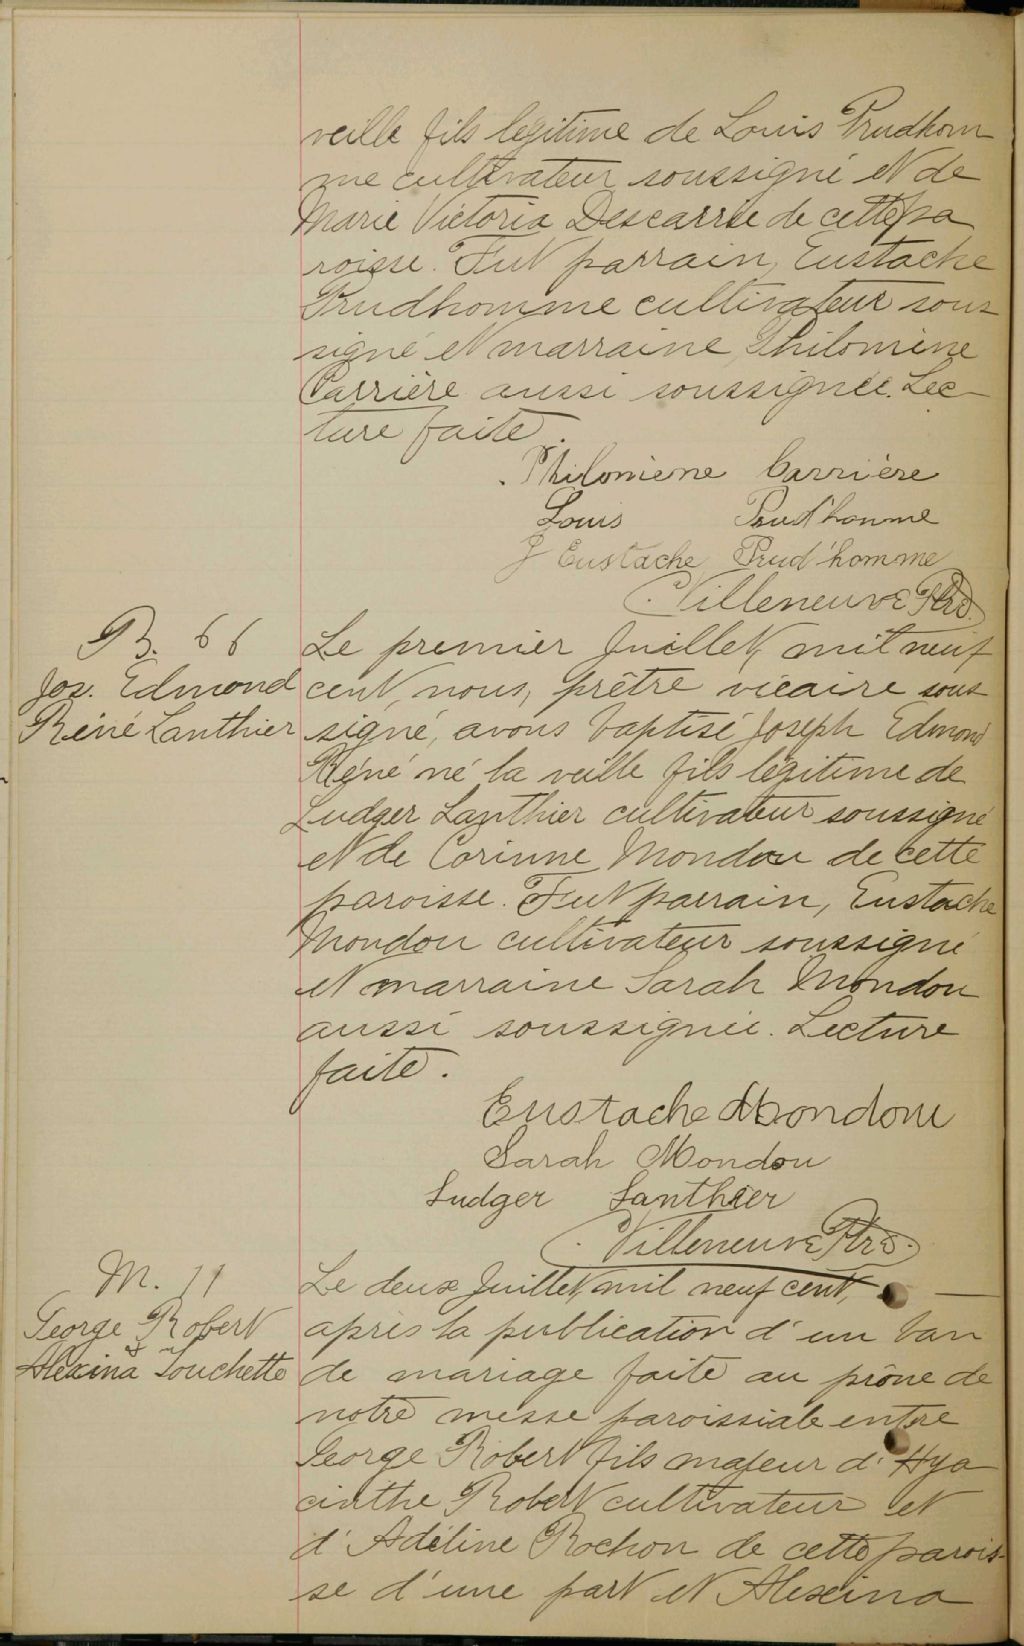 veille fils légitime de Louis Prudhom
me cultivateur soussigné et de
Marie Victoria Descarrie de cette pa
roisse. Fut parrain, Eustache
Prudhomme cultivateur sous-
signé et marraine, Philomène
Carrière aussi soussignée. Lec-
ture faite.
Philomène Carrière
Louis Prud'homme
J Eustache Prud'homme
Villeneuve Ptre.
B. 66
Jos. Edmond
Réné Lanthier
Le premier Juillet, mil neuf
cent, nous, prêtre vicaire sous
signé, avons baptisé Joseph Edmond
Réné né la veille fils légitime de
Ludger Lanthier cultivateur soussigné
et de Corinne Mondou de cette
paroisse. Fut parrain, Eustache
Mondou cultivateur soussigné
et marraine Sarah Mondou
aussi soussignée. Lecture
faite.
Eustache Mondou
Sarah Mondou
Ludger Lanthier
Villeneuve Ptre.
M. 11
George Robert
&
Alexina Touchette
Le deux Juillet, mil neuf cent,
après la publication d'un ban
de mariage faite au prône de
notre messe paroissiale entre
George Robert fils majeur d'Hya
cinthe Robert cultivateur et
d'Adéline Rochon de cette parois-
se d'une part et Alexina